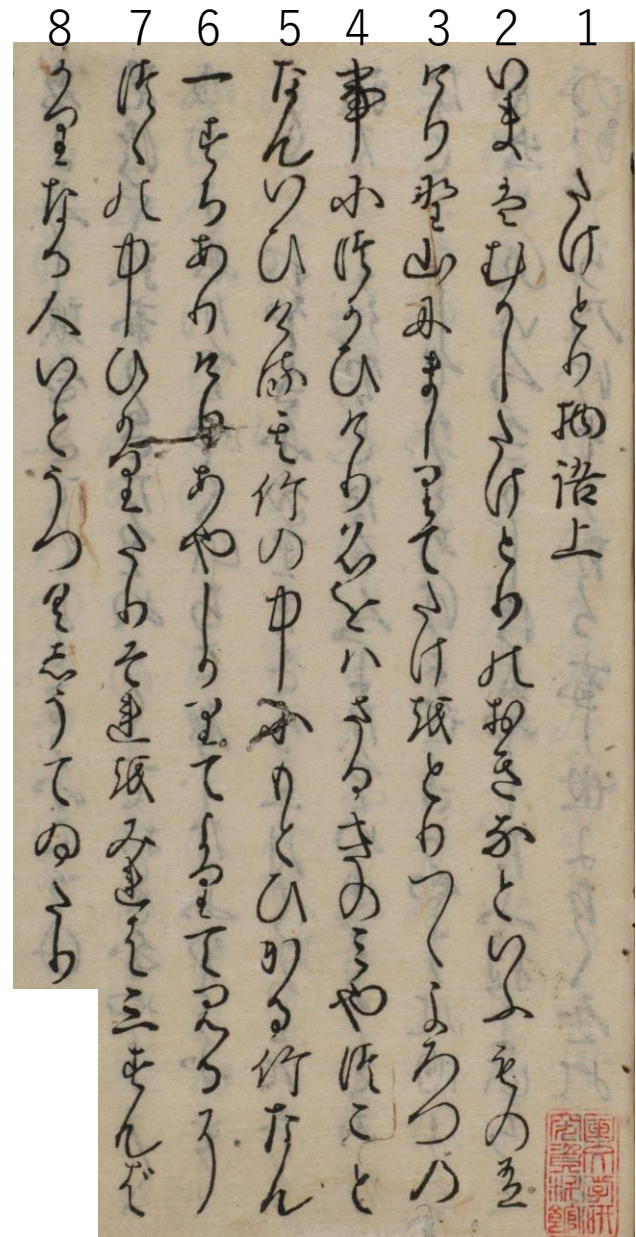 8 7 6 5 4 3 2 1
たけとり物語上
いまはむかしたけとりのおきなといふもの有
けり野山にましりてたけをとりつゝよろつの
事につかひけり名をはさるきのみやつこと
なんいひける其竹の中にもとひかる竹なん
一すちありけりあやしかりてよりて見るに
つゝの中ひかりたりそれをみれは三すんは
かりなる人いとうつくしうてゐたり
国文学研究資料館